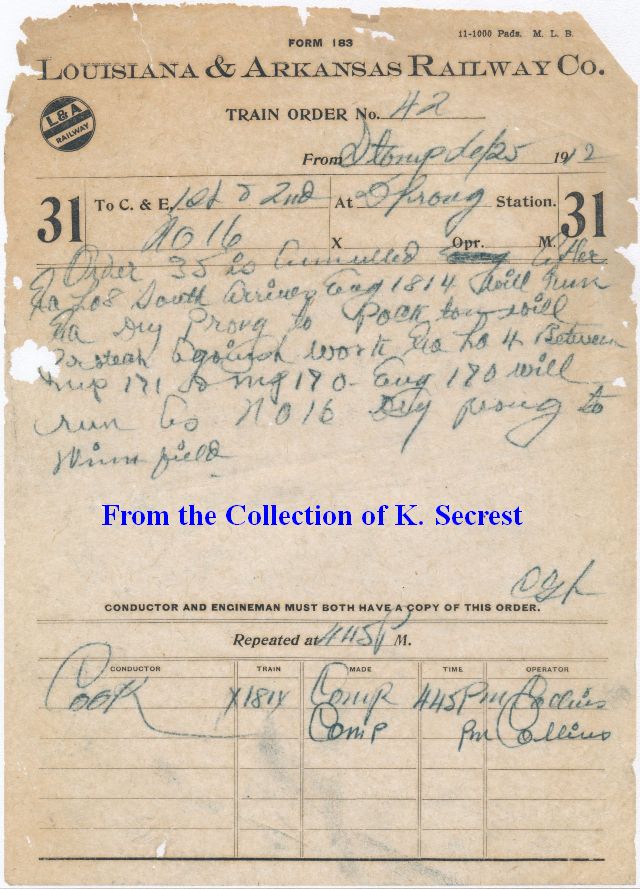 11-1000 Pads. M. L. B.
FORM 183
LOUISIANA & ARKANSAS RAILWAY CO.
L & A
RAILWAY
TRAIN ORDER No. 42
From Stamps 25 1912
31 To C. & E. 1st & 2nd At D Prong Station. 31
NO 16 X Opr. M.
Order 35 is Annulled after
South arrives Eng 1814 will run
Dry Prong to will
against work 4 Between
mp 171 170 Eng 170 will
run as NO 16 Dry prong to
Winnfield
From the Collection of K. Secrest
CONDUCTOR AND ENGINEMAN MUST BOTH HAVE A COPY OF THIS ORDER.
Repeated at 445P M.
CONDUCTOR TRAIN MADE TIME OPERATOR
Cook Comp 445Pm Collins
Comp Pm Collins